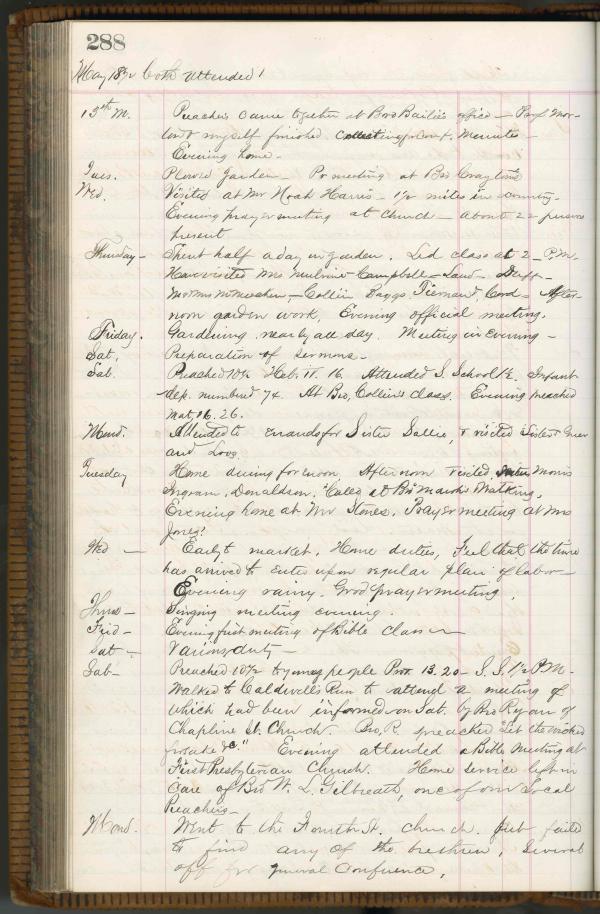 288
May 1872 both attended
13th M. Preachers came together at Bro Bailie's office — Prof Mor-
& myself finished Conf. Minutes —
Evening home —
Tues. Plowed Garden — Pr meeting at Bro
Wed. Visited at Mr Noah Harris — 1½ miles in country —
Evening prayermeeting at Church — about 22 persons
present
Thursday — Spent half a day in garden. Led class at 2 — P.M.
Have visited Mrs Campbell — —
Mr & Mrs — Collin Baggs, , Cord — After
noon garden work, Evening official meeting.
Friday. Gardening nearly all day. Meeting in Evening —
Sat. Preparation of sermons —
Sab. Preached 10½ Heb. 11. 16. Attended S. School ½. Infant
dep. numbered 74. At Bro, Collin's class. Evening preached
Mat, 16. 26.
Mond. Attended to errands for Sister Sallie, & visited Sisters Greer
and Love.
Tuesday Home during forenoon. Afternoon visited Morris
Ingram, Donaldson. Called at Bro
Evening home at Mr Jones. Prayer meeting at Mrs
Jones'
Wed — Early to market. Home duties, Feel that the time
has arrived to enter upon regular plan of labor —
Evening rainy. Good prayermeeting.
Thurs — Singing meeting evening.
Frid — Evening first meeting of Bible class —
Sat — Various duty —
Sab — Preached 10½ to young people Prov. 13. 20 — S. S. 1½ P.M.
Walked to Caldwell's Run to attend a meeting of
which had been informed on Sat. by Bro Ryan of
Chapline St. Church. Bro, R. preached "Let the wicked
forsake &c." Evening attended a Bible Meeting at
First Presbyterian Church. Home service left in
care of Bro W. L. Gilbreath, one of our Local
Preachers —
Mond. Went to the Fourth St. church. But failed
to find any of the brethren, Several
off for general Conference.